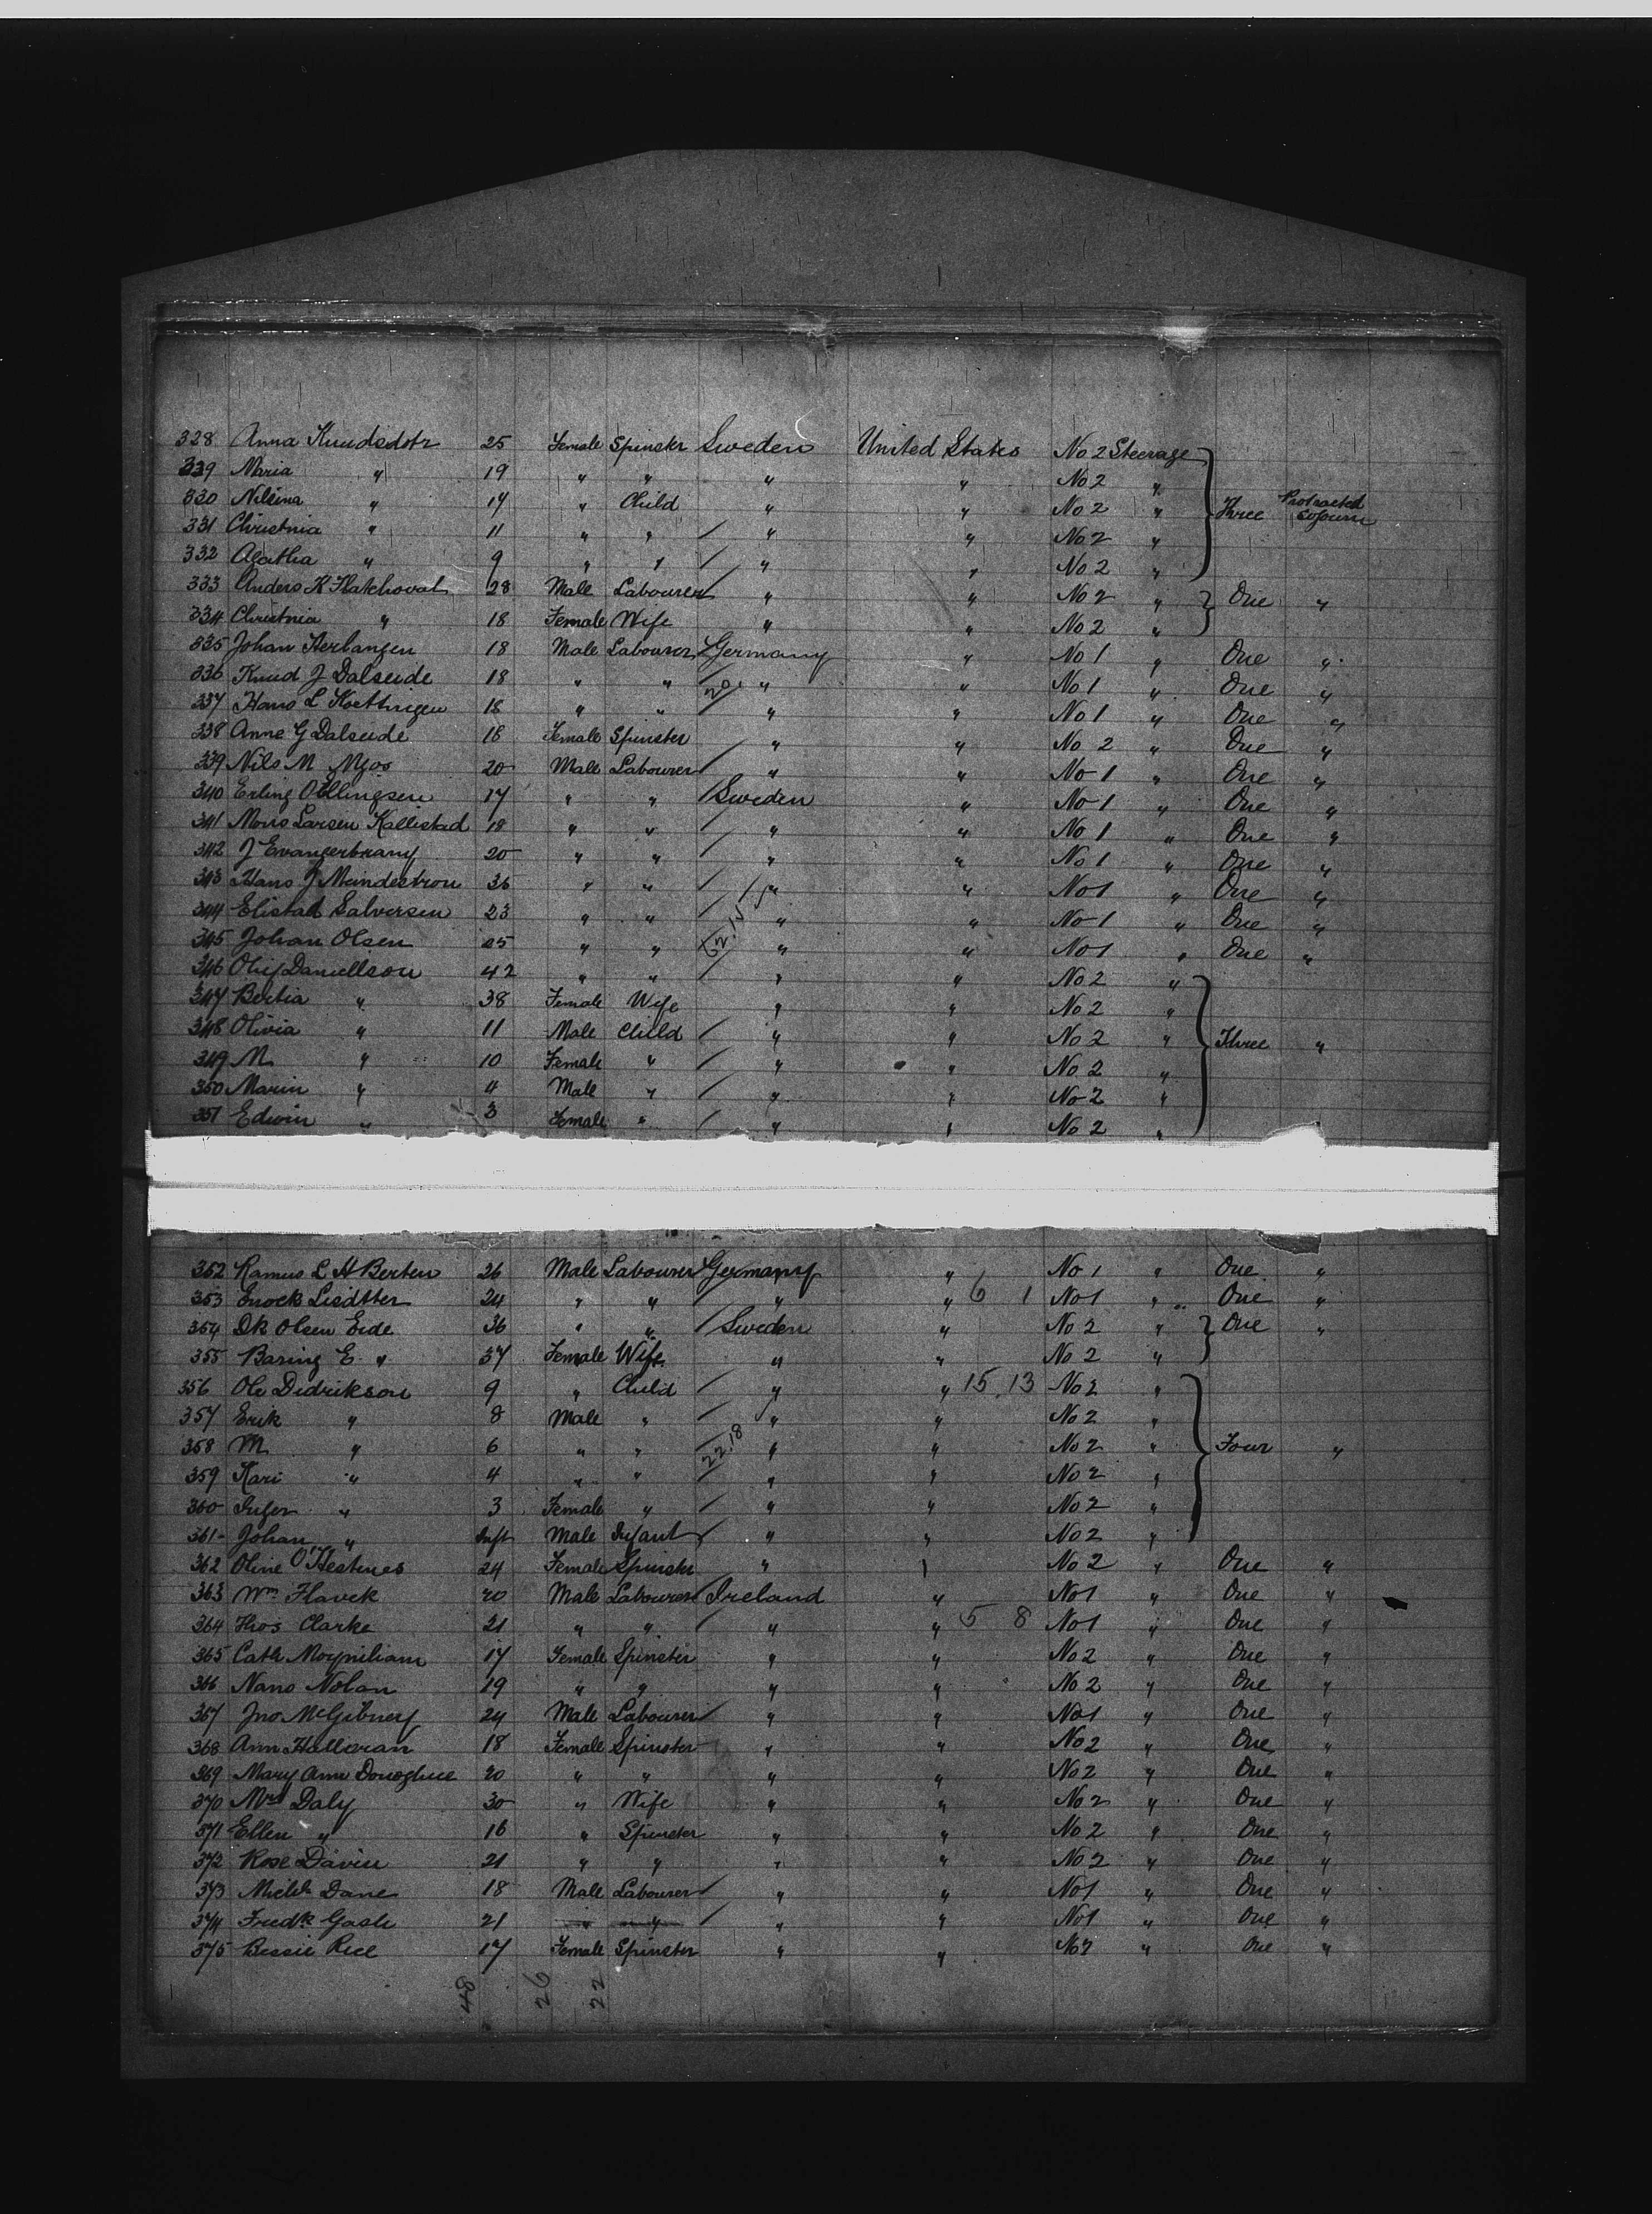 328 Anna Knudsdotr 25 Female Spinster Sweden United States No 2 Steerage
329 Maria " 19 " " " " No 2 "
330 Nilsina " 17 " Child " " No 2 " Three Protracted Sojourn
331 Christnia " 11 " " " " No 2 "
332 Agatha " 9 " " " " No 2 "
333 Anders K 28 Male Labourer " " No 2 " One "
334 Christnia " 18 Female Wife " " No 2 "
335 Johan Herlangen 18 Male Labourer Germany " No 1 " One "
336 Knud J Dalseide 18 " " 20 " " No 1 " One "
337 Hans L 18 " " " " No 1 " One "
338 Anne G Dalseide 18 Female Spinster " " No 2 " One "
339 Nils M Mjos 20 Male Labourer " " No 1 " One "
340 Erling 17 " " Sweden " No 1 " One "
341 Mons Larsen Kallestad 18 " " " " No 1 " One "
342 J 20 " " " " No 1 " One "
343 Hans J 36 " " " " No 1 " One "
344 Salversen 23 " " " " No 1 " One "
345 Johan Olsen 25 " " " " No 1 " One "
346 Daniellson 42 " " " " No 2 "
347 Bertia " 38 Female Wife " " No 2 "
348 Olivia " 11 Male Child " " No 2 " Three "
349 M " 10 Female " " " No 2 "
350 Marin " 4 Male " " " No 2 "
351 Edwin " 3 Female " " " No 2 "
352 Ramus L H Berten 26 Male Labourer Germany " No 1 " One "
353 Enock 24 " " " " 6 1 No 1 " One "
354 Dk Olsen Eide 36 " " Sweden " No 2 " One "
355 Baring E. " 37 Female Wife " " No 2 "
356 Ole Didrikson 9 " Child " " 15 13 No 2 "
357 Erik " 8 Male " " " No 2 "
358 M " 6 " " 22.18 " " No 2 " Four "
359 Kari " 4 " " " " No 2 "
360 Inger " 3 Female " " " No 2 "
361 Johan " Inft Male Infant " " No 2 "
362 Oline O'Hestnes 24 Female Spinster " " No 2 " One "
363 Wm Flavek 20 Male Labourer Ireland " No 1 " One "
364 Thos Clarke 21 " " " " 5 8 No 1 " One "
365 Cath Moynihan 17 Female Spinster " " No 2 " One "
366 Nano Nolan 19 " " " " No 2 " One "
367 Jno McGibney 24 Male Labourer " " No 1 " One "
368 Ann Halloran 18 Female Spinster " " No 2 " One "
369 Mary Ann Donoghue 20 " " " " No 2 " One "
370 Mrs Daly 30 " Wife " " No 2 " One "
371 Ellen " 16 " Spinster " " No 2 " One "
372 Rose Davin 21 " " " " No 2 " One "
373 Michl Dane 18 Male Labourer " " No 1 " One "
374 Fredk Gash 21 " " " " No 1 " One "
375 Bessie Rice 17 Female Spinster " " No 2 " One "
48 26 22